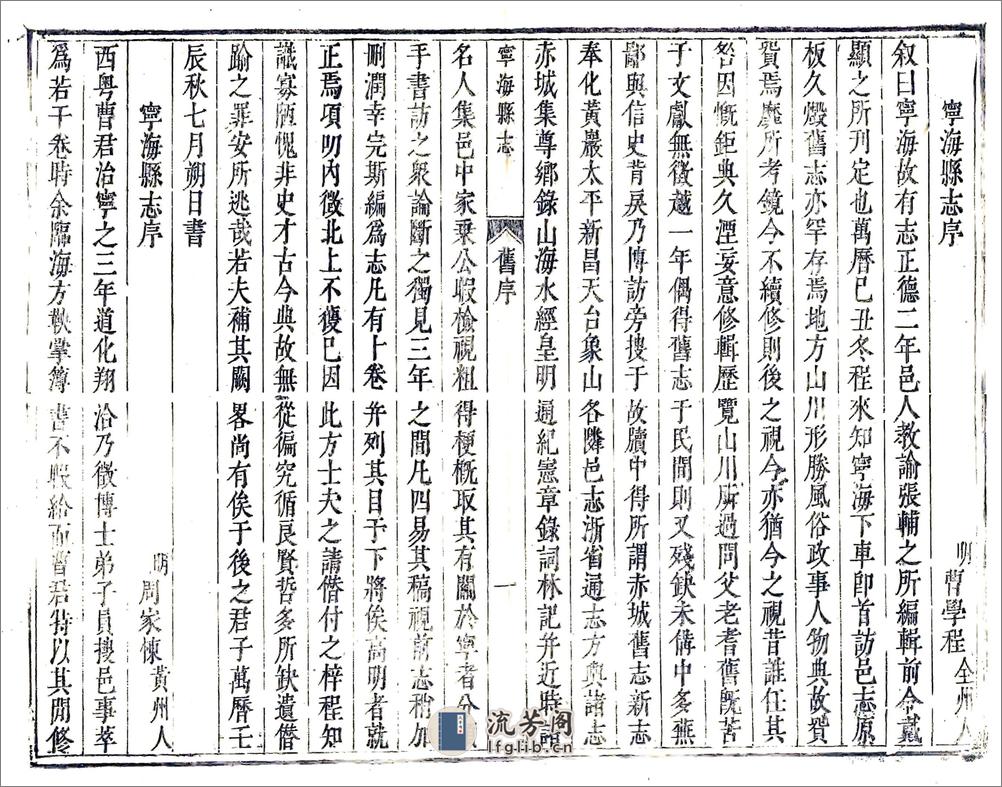 寧海縣志序
明 曹學程 全州人
叙曰寧海故有志正德二年邑人教諭張輔之所編輯前令戴
顯之所刊定也萬曆己丑冬程來知寧海下車即首訪邑志原
板久燬舊志亦罕存焉地方山川形勝風俗政事人物典故貿
貿焉靡所考鏡今不續修則後之視今亦猶今之視昔誰任其
咎因慨鉅典久湮妄意修輯歷覽山川所過問父老耆舊旣苦
于文獻無徵越一年偶得舊志于民間則又殘缺未備中多蕪
鄙與信史背戾乃博訪旁搜于故牘中得所謂赤城舊志新志
奉化黃巖太平新昌天台象山各隣邑志浙省通志方輿諸志
赤城集尊鄉錄山海水經皇明通紀憲章錄詞林記并近時諸
寧海縣志 舊序 一
名人集邑中家乘公暇檢視粗得梗概取其有關於寧者分
手書訪之衆論斷之獨見三年之間凡四易其稿視前志稍加
刪潤幸完斯編爲志凡有十卷并列其目于下將俟高明者就
正焉項叨內徵北上不獲已因此方士夫之請僭付之梓程知
識寡陋愧非史才古今典故無從徧究循良賢哲多所缺遺僭
踰之罪安所逃哉若夫補其闕畧尚有俟于後之君子萬曆壬
辰秋七月朔日書
寧海縣志序
明 周家棟 黃州人
西粵曹君治寧之三年道化翔洽乃徵博士弟子員搜邑事萃
爲若干卷時余臨海方鞅掌簿書不暇給而曹君特以其閒修
流芳阁
lfglib.cn